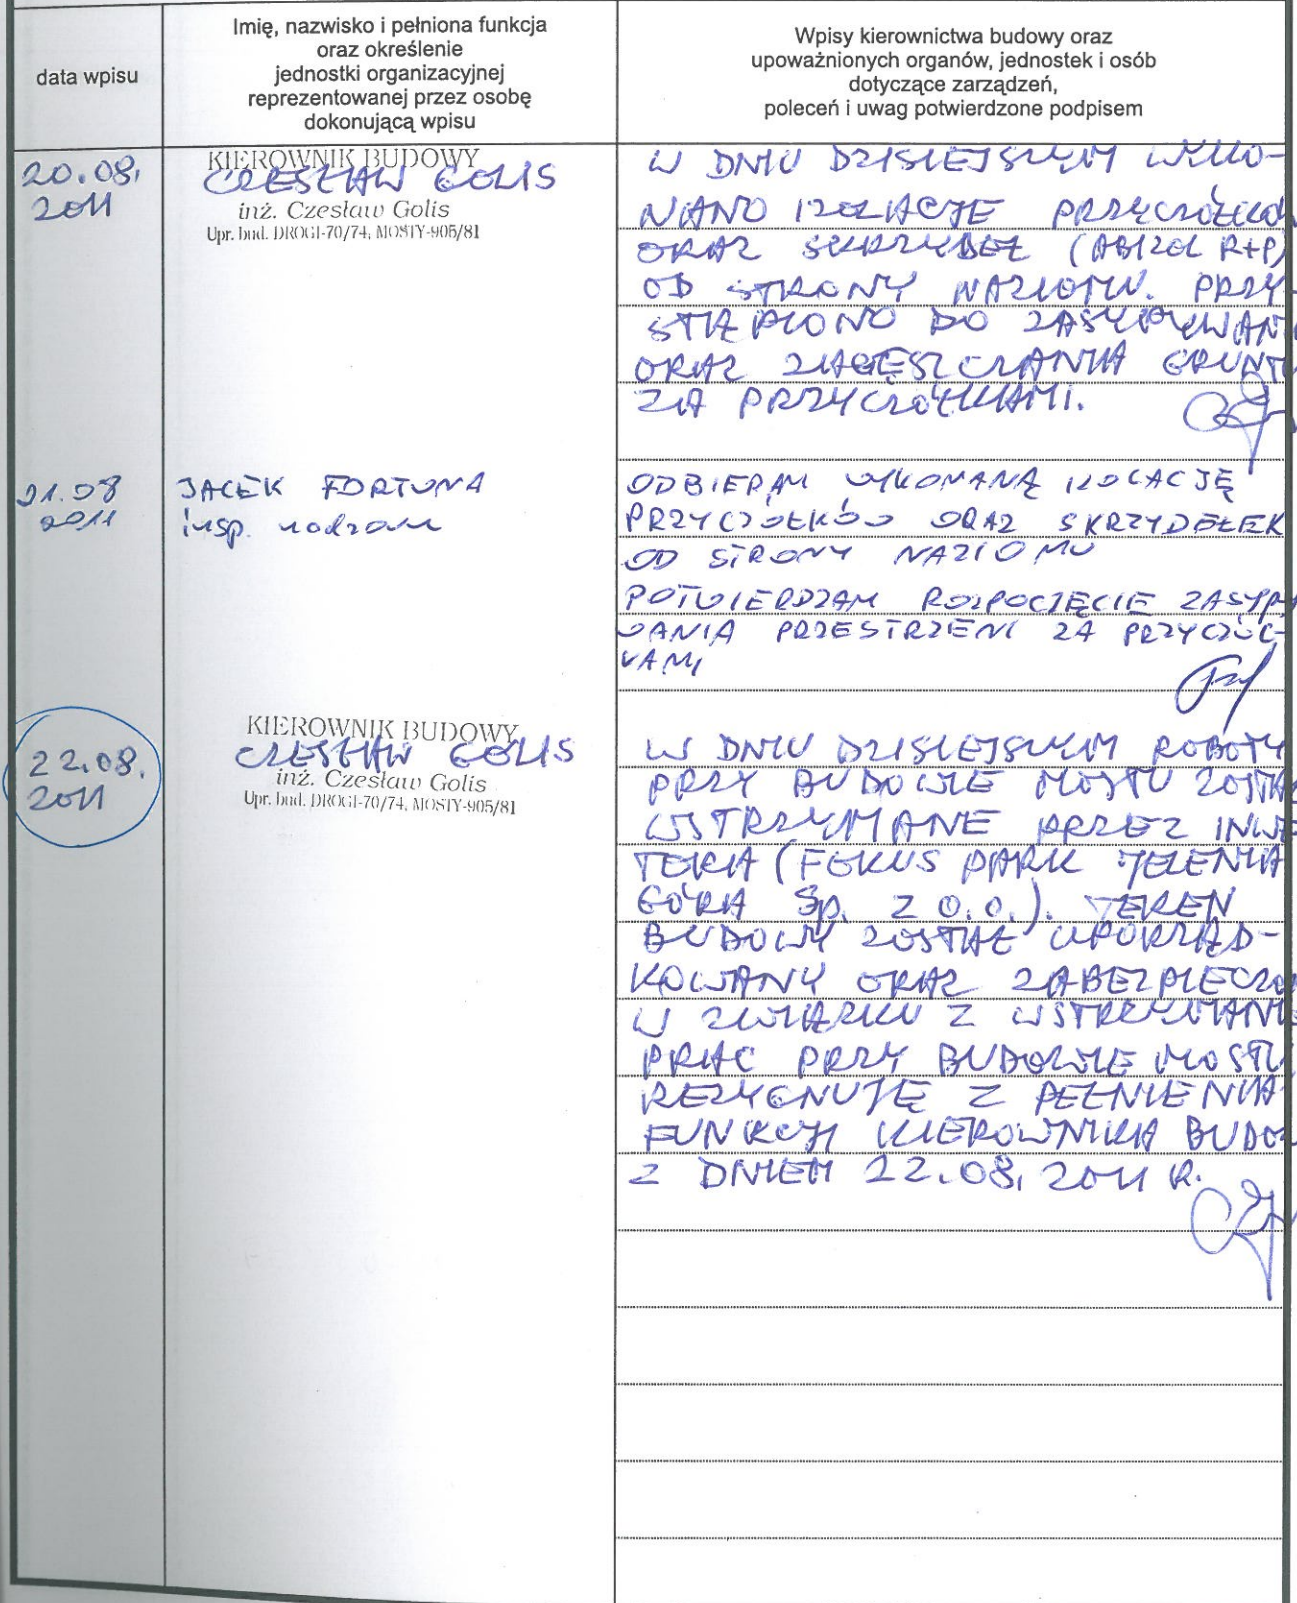 data wpisu
Imię, nazwisko i pełniona funkcja
oraz określenie
jednostki organizacyjnej
reprezentowanej przez osobę
dokonującą wpisu
Wpisy kierownictwa budowy oraz
upoważnionych organów, jednostek i osób
dotyczące zarządzeń,
poleceń i uwag potwierdzone podpisem
20.08.
2011
KIEROWNIK BUDOWY
CZESŁAW GOLIS
inż. Czesław Golis
Upr. bud. DROGI-70/74, MOSTY-905/81
W DNIU DZISIEJSZYM WYKO-
NANO IZOLACJE PRZYCZÓŁKÓW
ORAZ SKRZYDEŁ (ABIZOL R+P)
OD STRONY NAZIOMU. PRZY-
STĄPIONO DO ZASYPYWAN
ORAZ ZAGĘSZCZANIA GRUNTU
ZA PRZYCZÓŁKAMI.
21.08
2011
JACEK FORTUNA
insp. nadzoru
ODBIERAM WYKONANĄ IZOLACJĘ
PRZYCZÓŁKÓW ORAZ SKRZYDEŁEK
OD STRONY NAZIOMU
POTWIERDZAM ROZPOCZĘCIE ZASYP
WANIA PRZESTRZENI ZA PRZYCZÓŁ-
KAMI
22.08.
2011
KIEROWNIK BUDOWY
CZESŁAW GOLIS
inż. Czesław Golis
Upr. bud. DROGI-70/74, MOSTY-905/81
W DNIU DZISIEJSZYM ROBOTY
PRZY BUDOWIE MOSTU ZOSTAŁ
WSTRZYMANE PRZEZ INWE
TORA (FOKUS PARK JELENIA
GÓRA Sp. Z O.O.). TEREN
BUDOWY ZOSTAŁ UPORZĄD-
KOWANY ORAZ ZABEZPIECZO
W ZWIĄZKU Z WSTRZYMANI
PRAC PRZY BUDOWIE MOSTU
REZYGNUJĘ Z PEŁNIENIA
FUNKCJI KIEROWNIKA BUDO
Z DNIEM 22.08.2011 R.